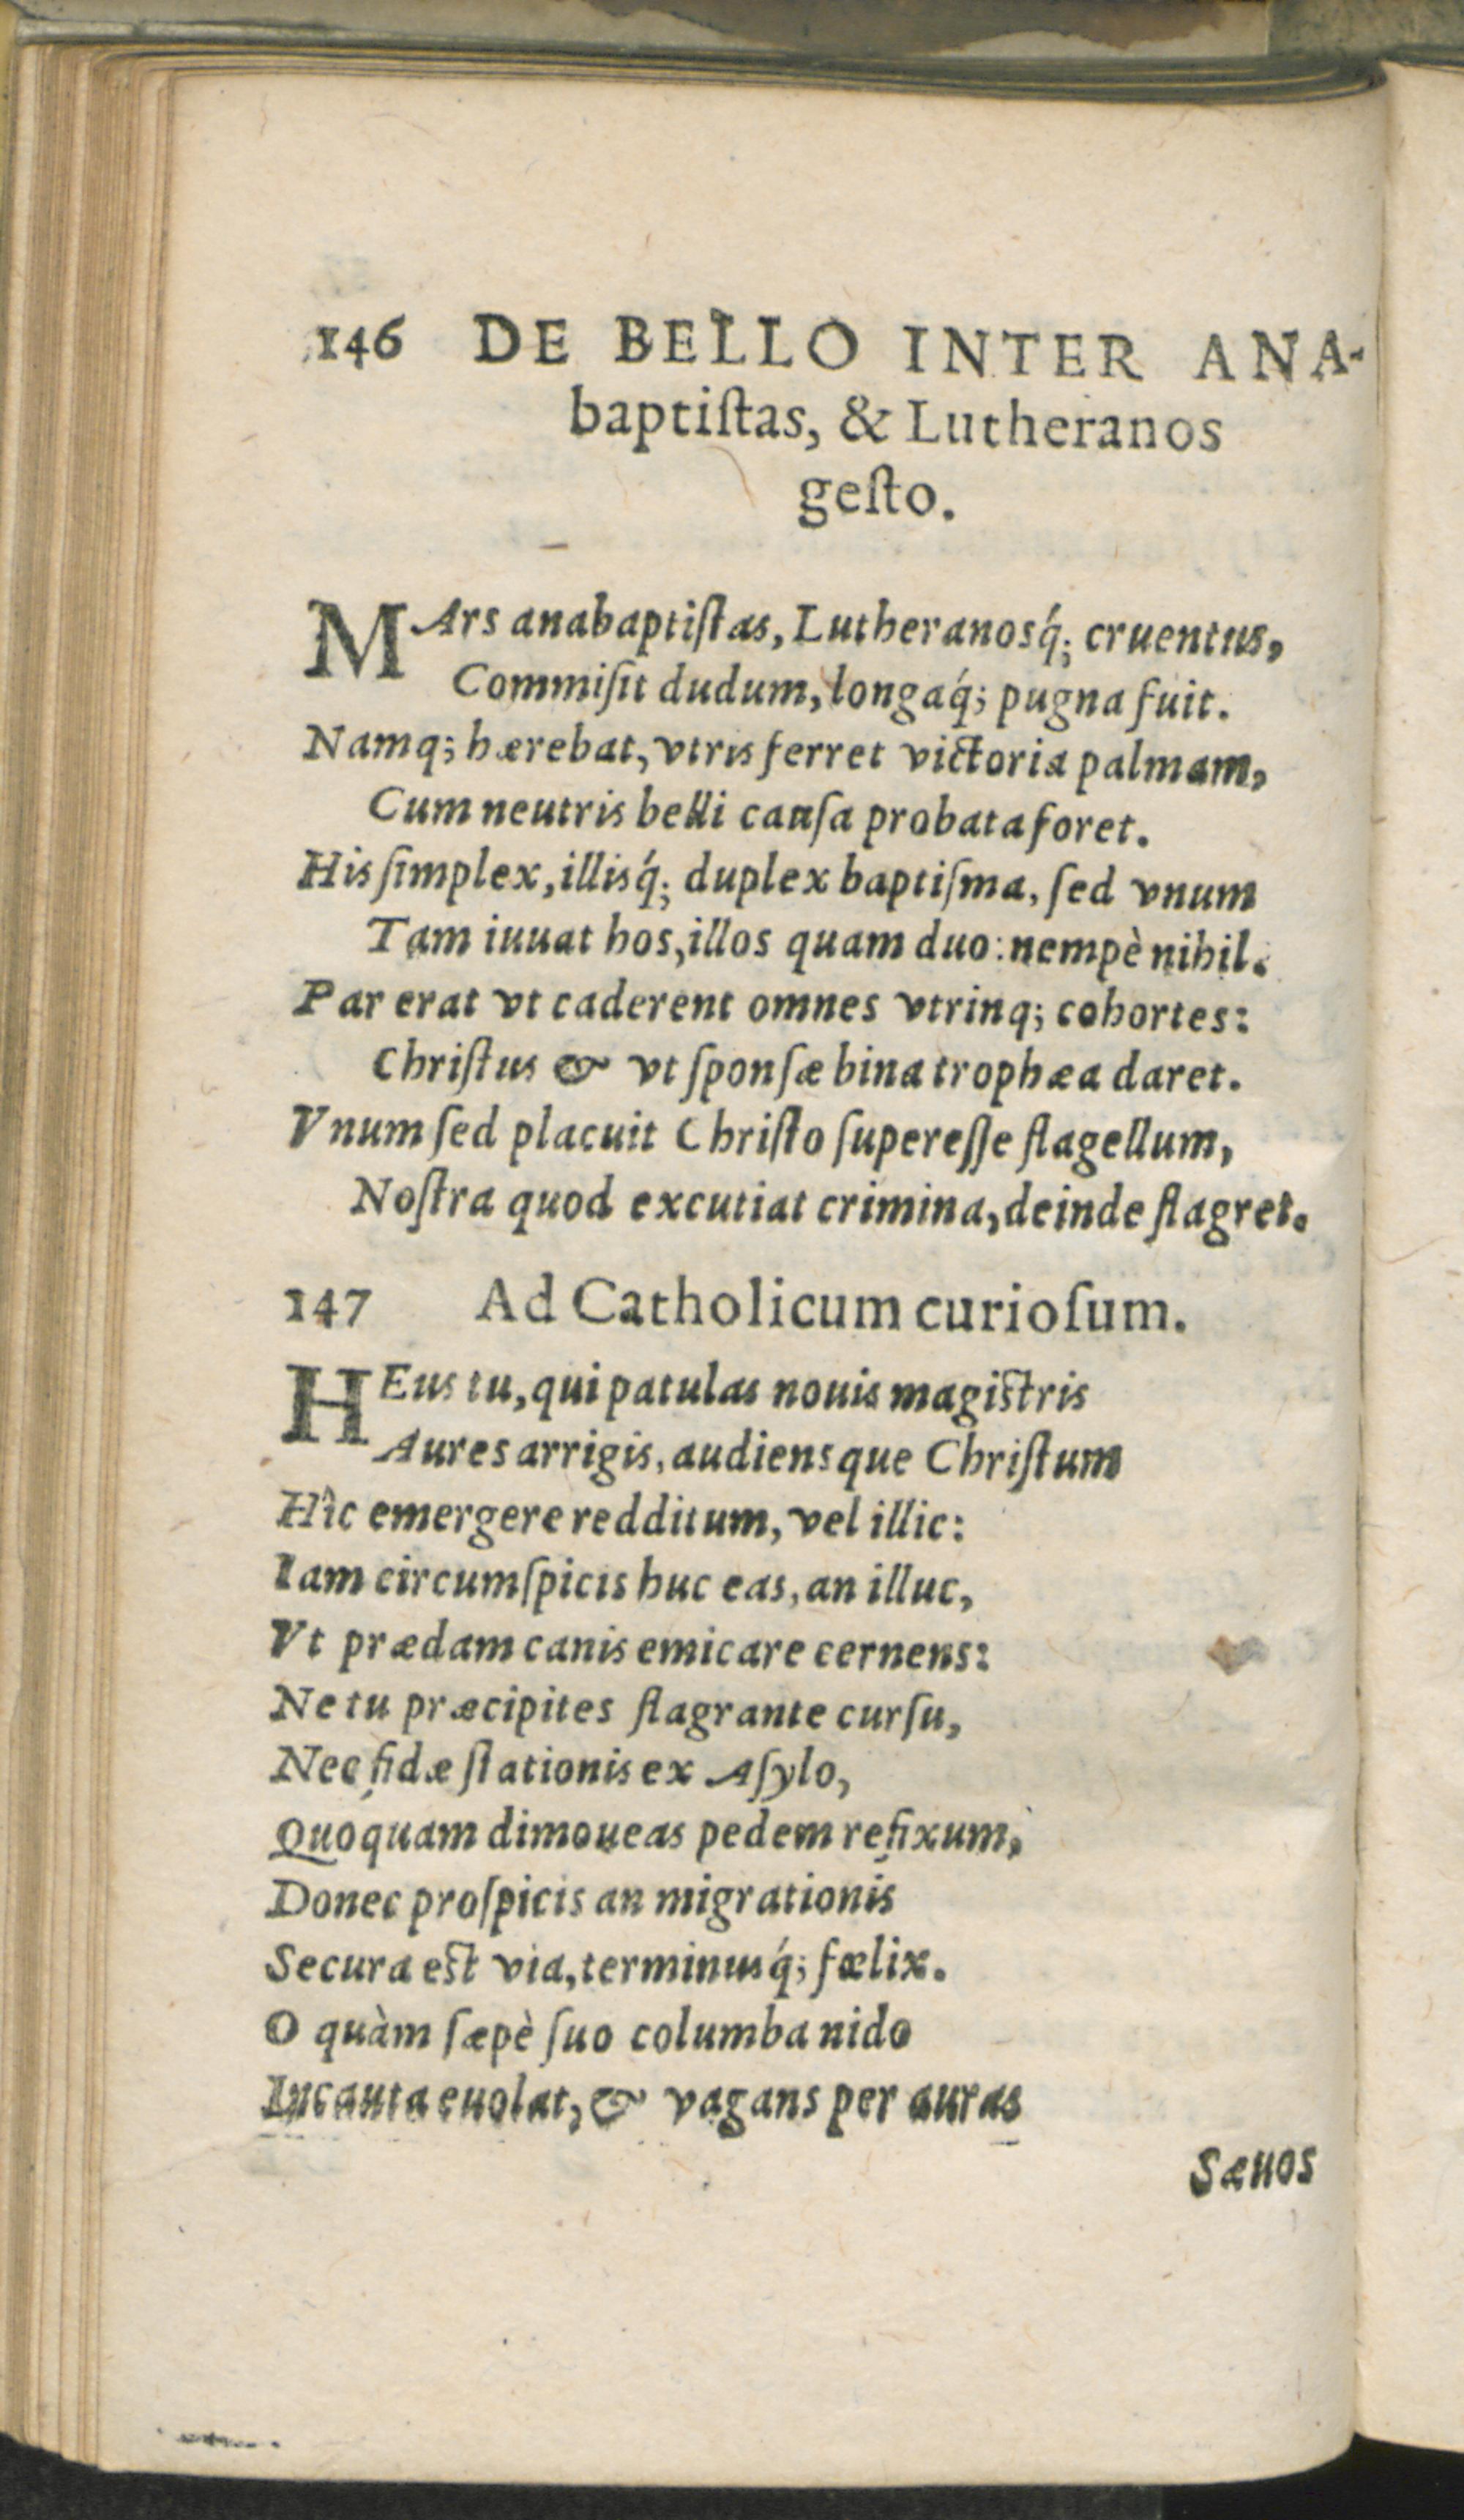 146 DE BELLO INTER ANA-
baptiſtas, & Lutheranos
geſto.
MArs anabaptiſtas, Lutheranosq́; cruentus,
Commiſit dudum, longaq́; pugna fuit.
Namq; hærebat, vtris ferret victoria palmam,
Cum neutris belli cauſa probata foret.
His ſimplex, illisq́; duplex baptiſma, ſed vnum
Tam iuuat hos, illos quam duo: nempè nihil.
Par erat vt caderent omnes vtrinq; cohortes:
Chriſtus & vt ſponſæ bina trophæa daret.
Vnum ſed placuit Chriſto ſupereſſe flagellum,
Noſtra quod excutiat crimina, deinde flagret.
147 Ad Catholicum curioſum.
HEus tu, qui patulas nouis magiſtris
Aures arrigis, audiensque Chriſtum
Hîc emergere redditum, vel illic:
Iam circumſpicis huc eas, an illuc,
Vt prædam canis emicare cernens:
Ne tu præcipites flagrante curſu,
Nec fidæ ſtationis ex Aſylo,
Quoquam dimoueas pedem refixum,
Donec proſpicis an migrationis
Secura eſt via, terminusq́; fœlix.
O quàm ſæpè ſuo columba nido
Incauta euolat, & vagans per auras
Sæuos